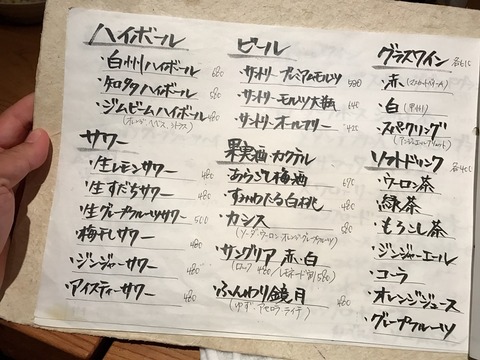 ハイボール
・白州ハイボール 680
・知多ハイボール 580
・ジムビームハイボール 480
サワー
・生レモンサワー 480
・生すだちサワー 480
・生グレープフルーツサワー 500
・梅干しサワー 480
・ジンジャーサワー 480
・アイスティーサワー 480
ビール
・サントリープレミアムモルツ
・サントリーモルツ大瓶 640
・サントリーオールフリー 425
果実酒・カクテル
・あらごし梅酒 690
・すみわたる白桃 480
・カシス
(ソーダ・ウーロン・オレンジ・グレープフルーツ)
・サングリア 赤・白
・ふんわり鏡月 480
(ゆず・アセロラ・ライチ)
グラスワイン
・赤
・白(甲州)
・スパークリング
ソフトドリンク 各400
・ウーロン茶
・緑茶
・もろこし茶
・ジンジャーエール
・コーラ
・オレンジジュース
・グレープフルーツ